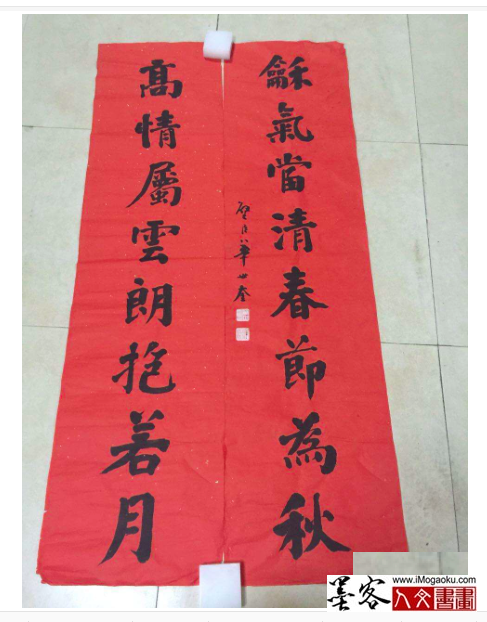 龢氣當清春節為秋
高情屬雲朗抱若月
華世奎
墨客
www.iMogaoku.com
人文書畫